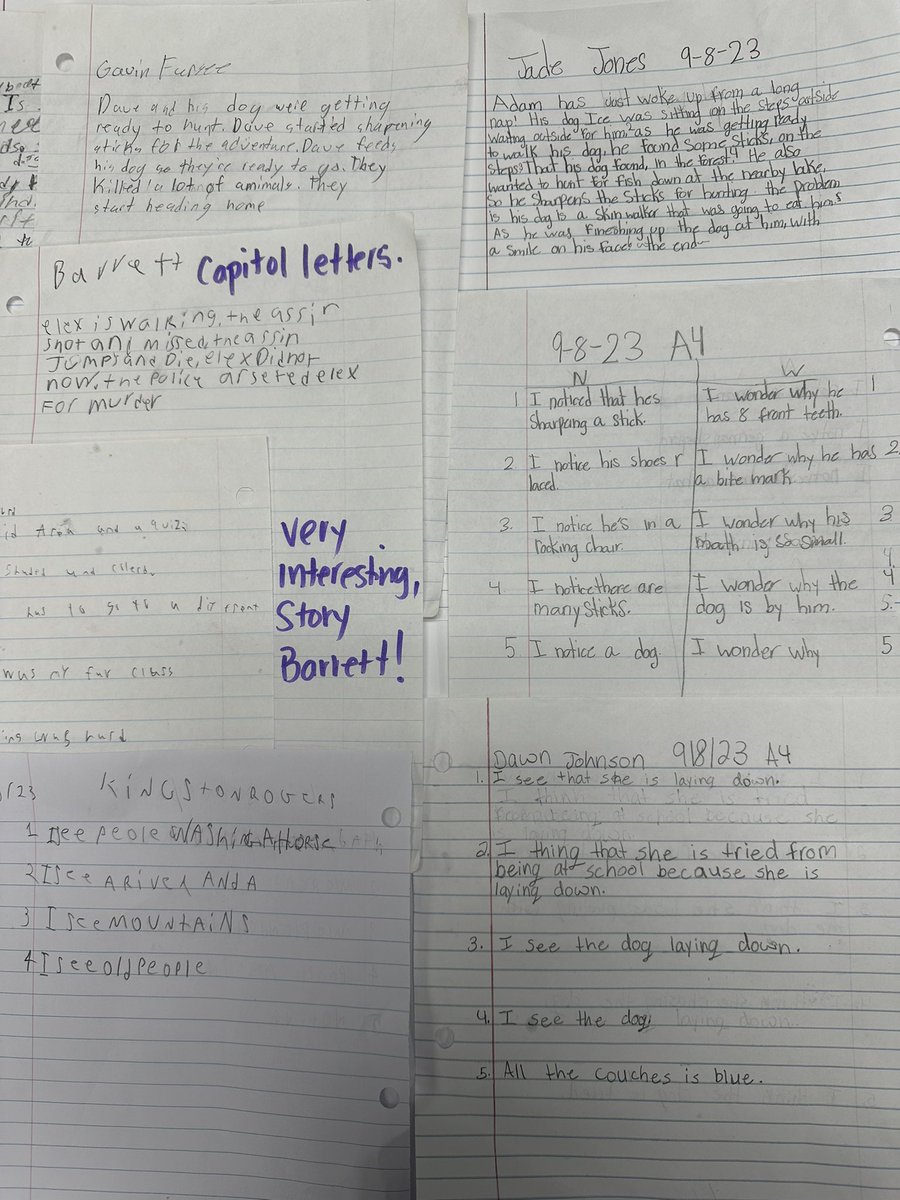 Gavin
Dave and his dog were getting
ready to hunt. Dave started sharpening
sticks for the adventure. Dave feeds
his dog so they're ready to go. They
killed a lot of amimals. They
start heading home
Jade Jones 9-8-23
Adam has just woke up from a long
nap! His dog Ice was sitting on the steps outside
waiting outside for him. as he was getting ready
to walk his dog, he found some sticks, on the
steps! That his dog found, in the forest! He also
wanted to hunt for fish down at the nearby lake,
So he sharpens the sticks for hunting. the problem
is his dog is a skin walker that was going to eat him.
As he was fineshing up the dog at him, with
a smile on his face! the end
Barrett Capitol letters.
elex is walking, the assin
shot and missed, the assin
Jumps and Die, elex Did not
now, the police arseted elex
For murder
very
interesting,
Story
Barrett!
9-8-23 A4
N W
1 I noticed that hes
Sharping a stick.
I wonder why he
has 8 front teeth.
1
2. I notice his shoes r
laced.
I wonder why he has
a bite mark
2.
3. I notice he's in a
rocking chair.
I wonder why his
mouth is so small.
3
4 I notice there are
many sticks.
I wonder why the
dog is by him.
4
5 I notice a dog.
I wonder why
5
Area and a quiz
has to go to a
was my fur class
KiNGStON ROGERS
1 I see people WAShiNG A HORSE
2 I see A RiVER AND A
3 I see MOUNtAiNS
4 I see old people
Dawn Johnson 9/8/23 A4
1. I see that she is laying down.
2. I thing that she is tried from
being at school because she is
laying down.
3. I see the dog laying down.
4. I see the dog
5. All the couches is blue.